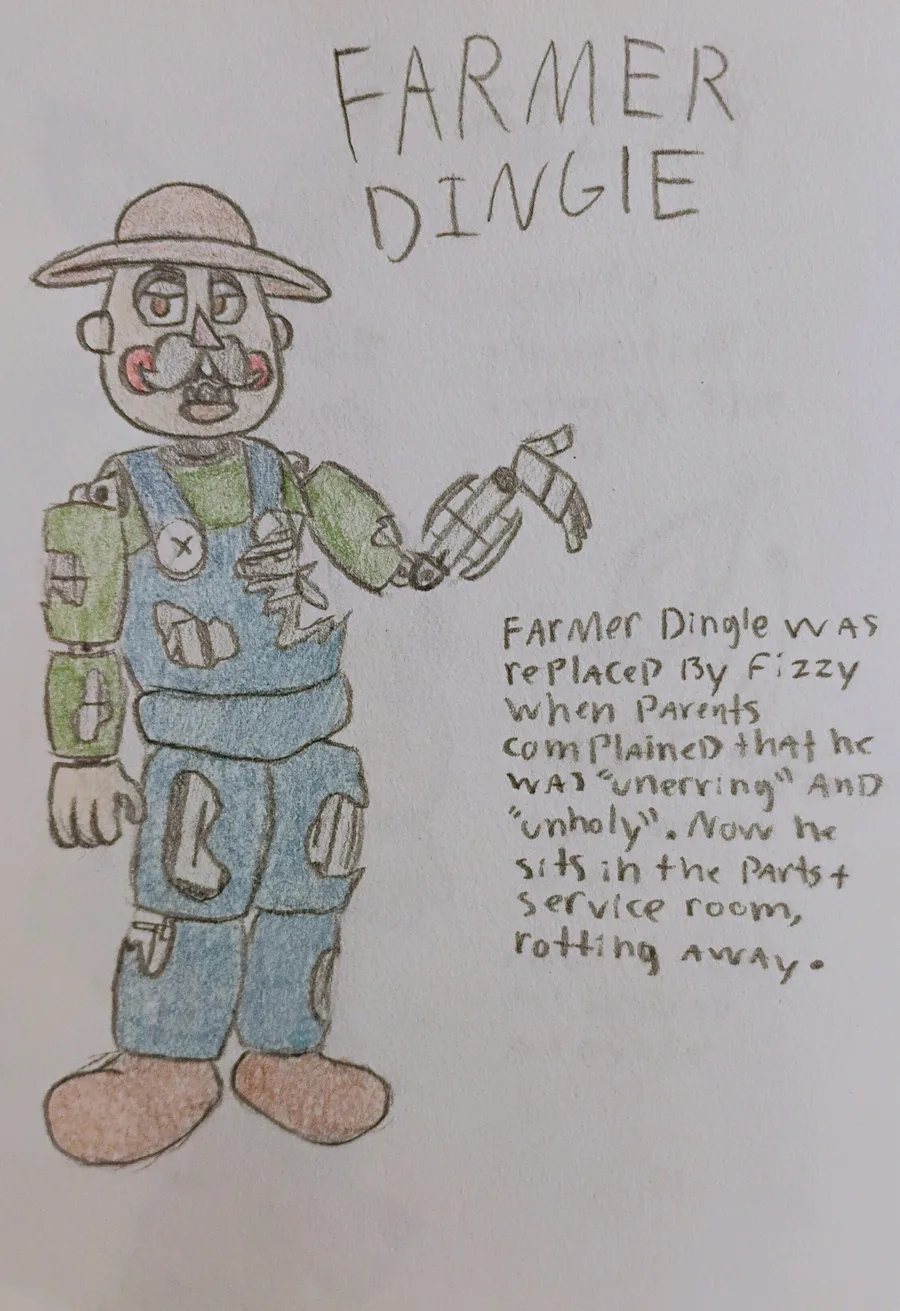 FARMER
DINGlE
FArMer Dingle wAs
rePlAceD By Fizzy
when PArents
comPlaineD thAt he
wAs "unerving" AnD
"unholy". Now he
sits in the PArts +
service room,
rotting AwAy.